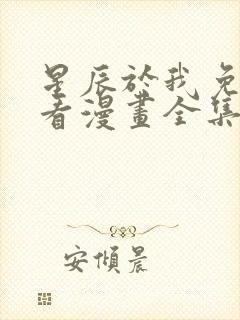 星辰於我免
看漫畫全集
安傾晨